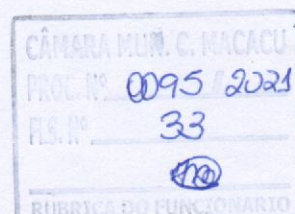 CÂMARA MUN. C. MACACU
PROC. Nº 0095 / 2021
FLS. Nº 33
RUBRICA DO FUNCIONARIO